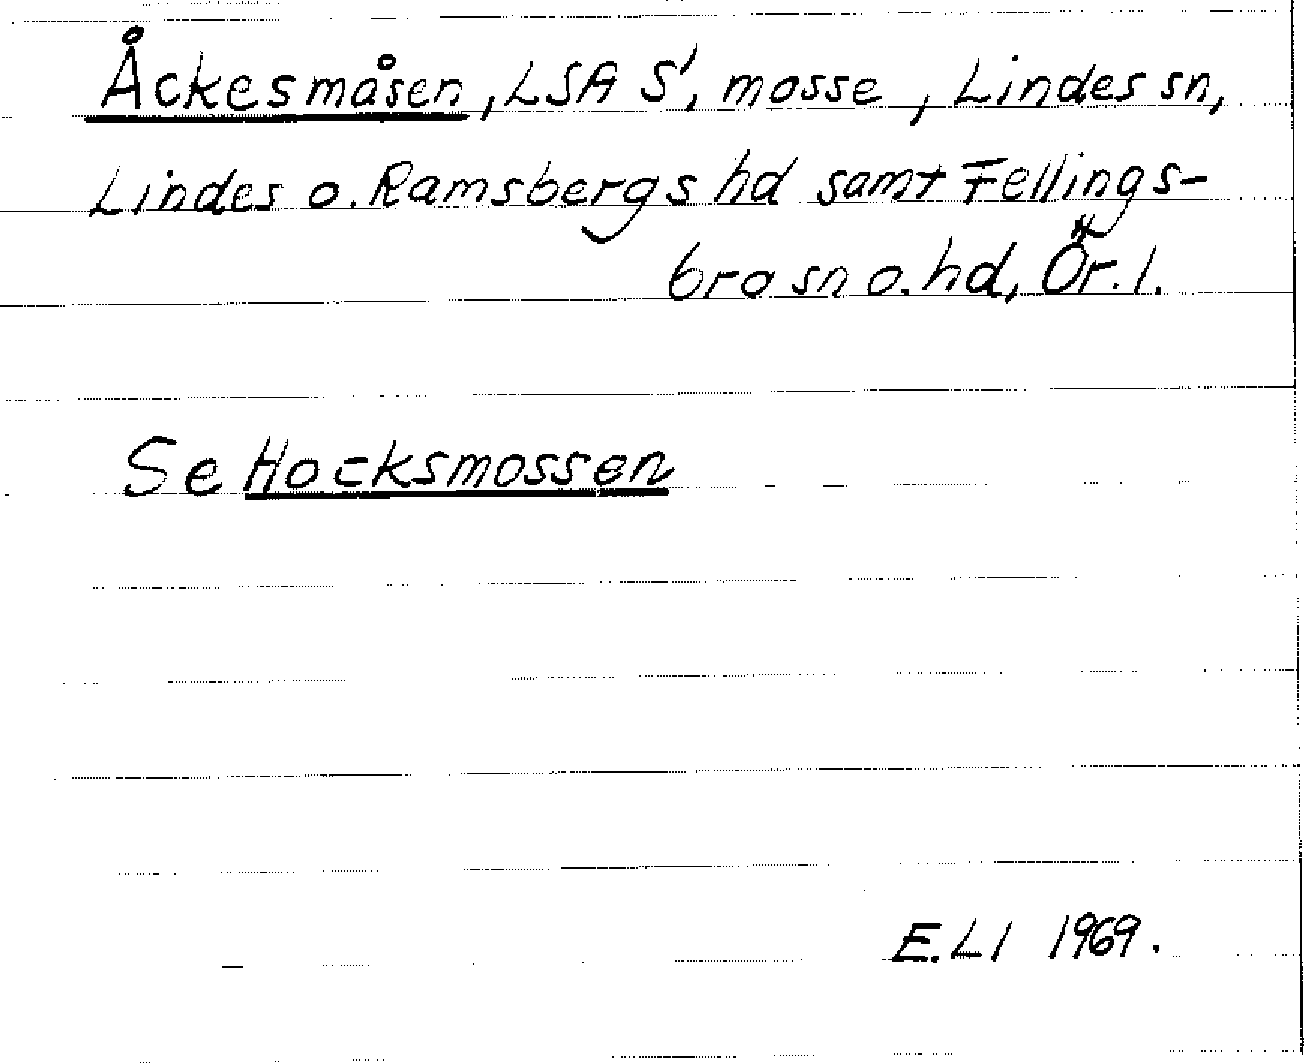 Åckesmåsen, LSA S', mosse, Lindes sn,
Lindes o. Ramsbergs hd samt Fellings-
bro sn o. hd, Ör. l.
Se Hocksmossen
E. LI 1969.